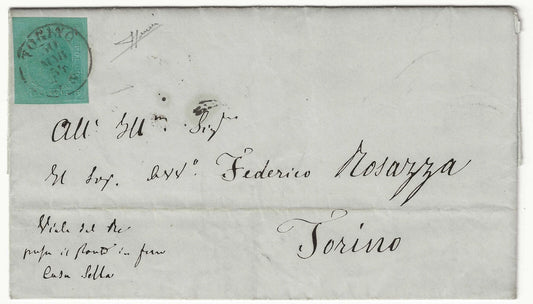 TORINO
10
55
All' Ill.m Sig.r
Il Sig. Avv.º Federico Rosazza
Torino
Viale del Re
presso il Ponte in ferro
Casa Sella